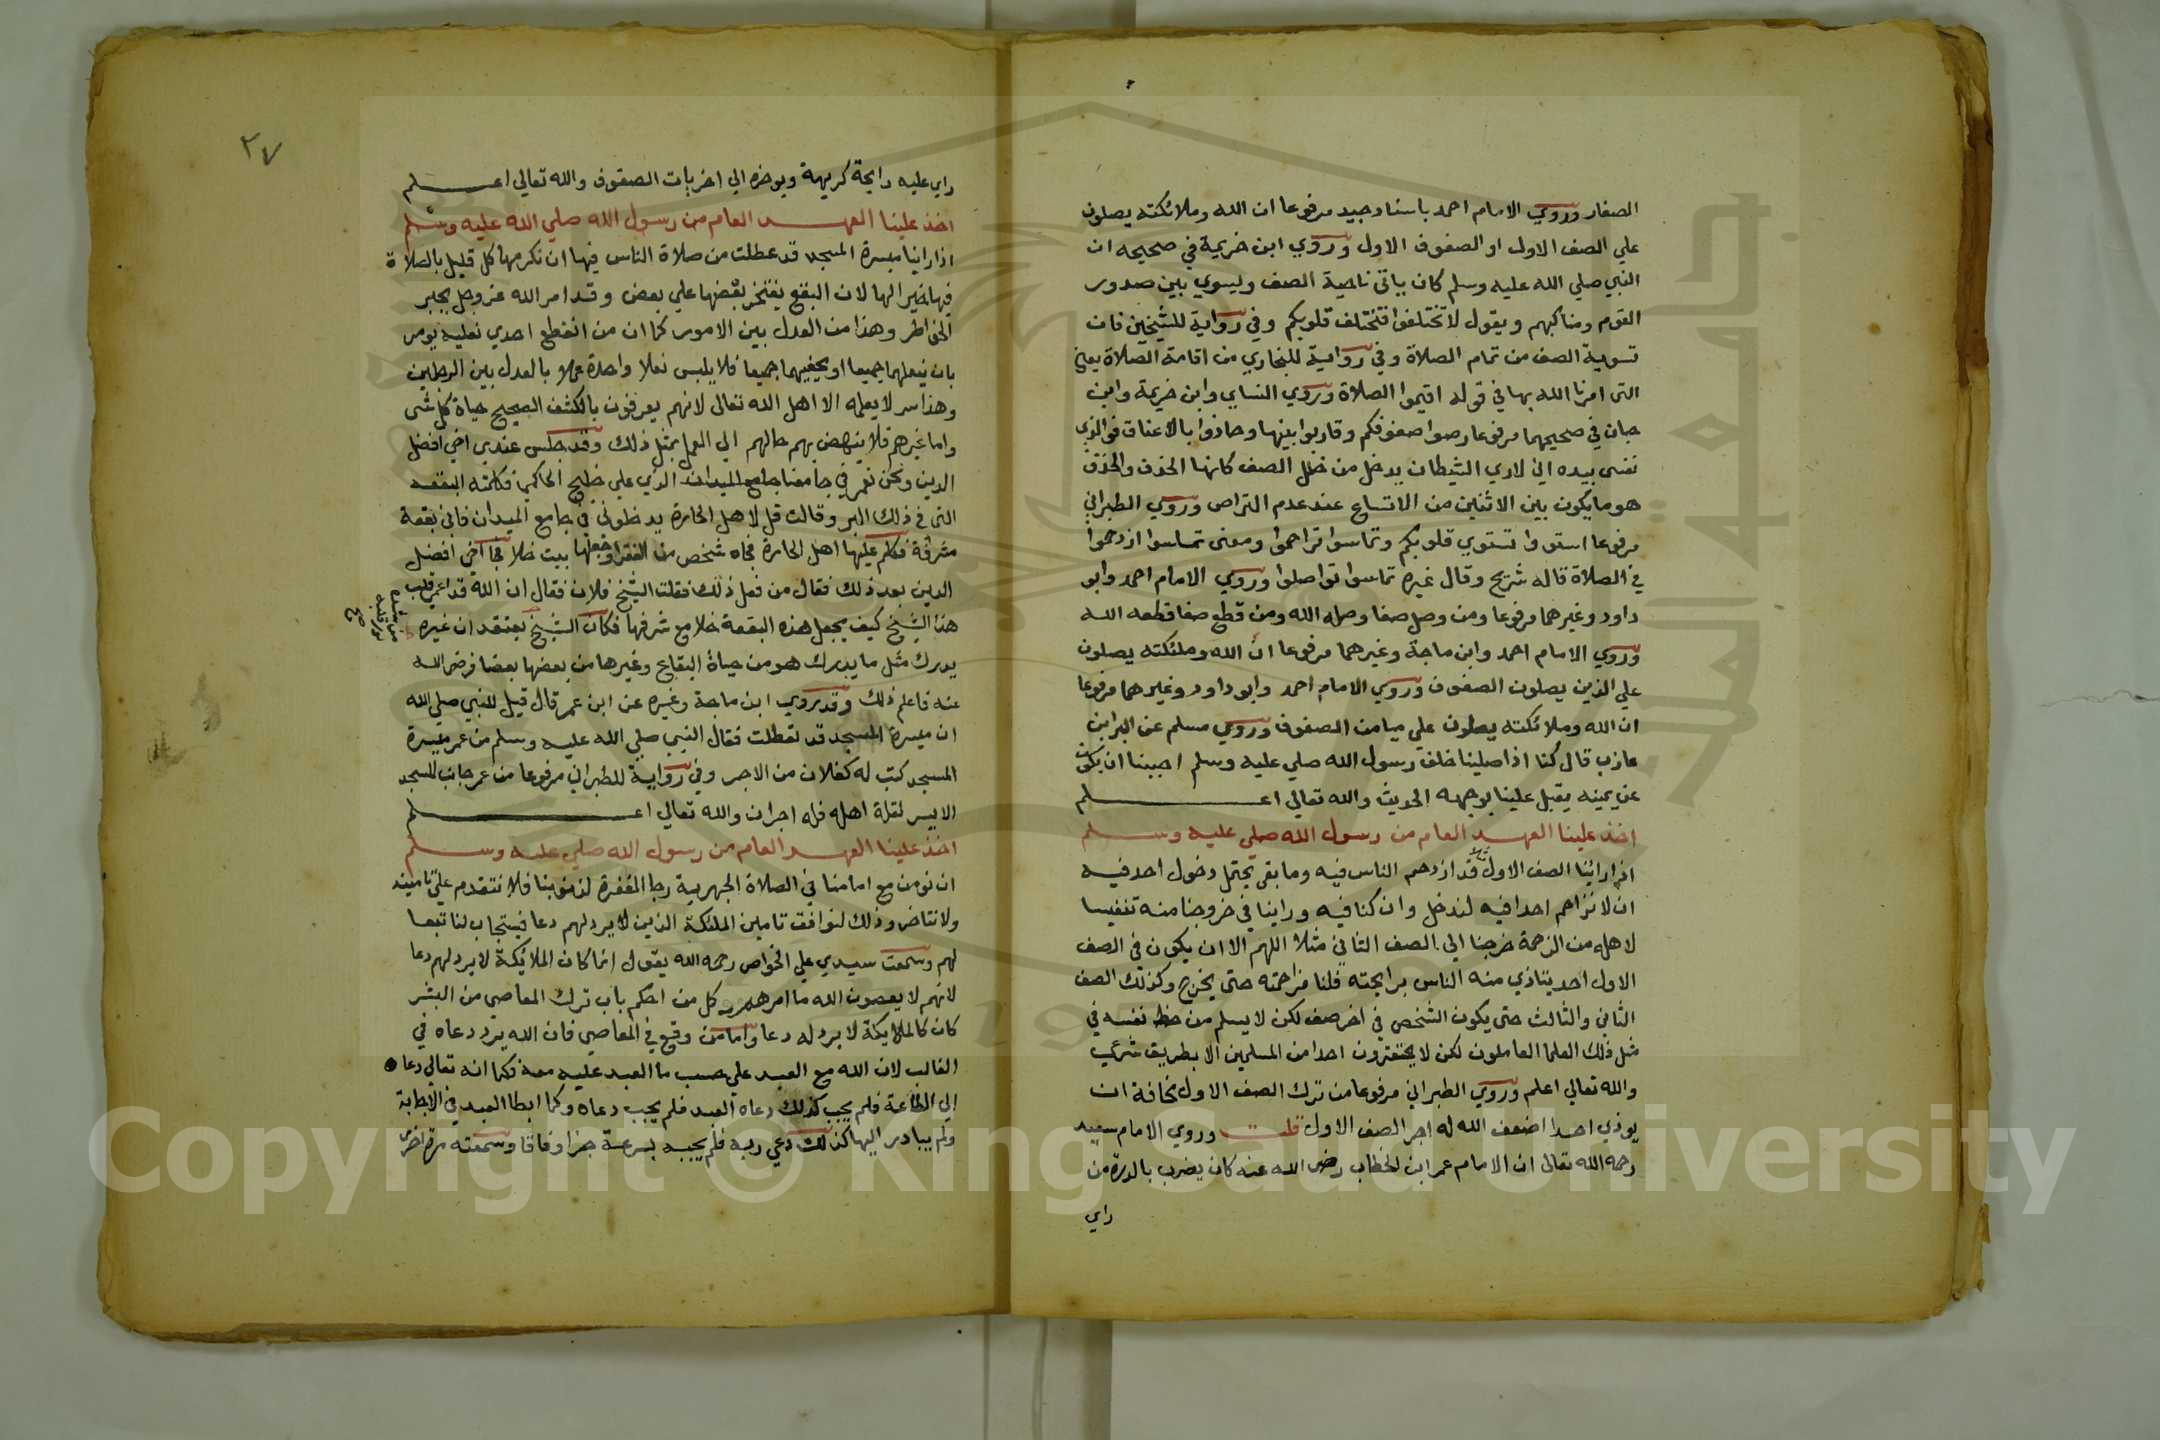 الصغار وروي الامام احمد باسناد جيد مرفوعا ان الله وملائكته يصلون
علي الصف الاول او الصفوف الاول وروي ابن خزيمة في صحيحه ان
النبي صلي الله عليه وسلم كان ياتي ناحية الصف وليسوي بين صدور
القوم ومناكبهم ويقول لا تختلفوا فتختلف قلوبكم وفي رواية للشيخين فان
تسوية الصف من تمام الصلاة وفي رواية للبخاري من اقامة الصلاة يعني
التي امرنا الله بها في قوله اقيموا الصلاة وروي النساي وابن خزيمة وابن
حبان في صحيحهما مرفوعا رصوا صفوفكم وقاربوا بينها وحاذوا بالاعناق فوالذي
نفسي بيده اني لاري الشيطان يدخل من خلل الصف كانها الحذف والحذف
هو ما يكون بين الاثنين من الاتساع عند عدم التراص وروي الطبراني
مرفوعا استووا تستوي قلوبكم وتماسوا تراحموا ومعني تماسوا ازدحموا
في الصلاة قاله شريح وقال غيره تماسوا تواصلوا وروي الامام احمد وابو
داود وغيرهما مرفوعا ومن وصل صفا وصله الله ومن قطع صفا قطعه الله
وروي الامام احمد وابن ماجة وغيرهما مرفوعا ان الله وملئكته يصلون
علي الذين يصلون الصفوف وروي الامام احمد وابو داود وغيرهما مرفوعا
ان الله وملائكته يصلون علي ميامن الصفوف وروي مسلم عن البرا بن
عازب قال كنا اذا صلينا خلف رسول الله صلي عليه وسلم احببنا ان نكون
عن يمينه يقبل علينا بوجهه الحديث والله تعالي اعلم
اخذ علينا العهد العام من رسول الله صلي عليه وسلم
اذا راينا الصف الاول قد ازدحم الناس فيه وما بقي يحتمل دخول احد فيه
ان لا نزاحم احدا فيه لندخل وان كنا فيه وراينا في خروجنا منه تنفيسا
لاهله من الزحمة خرجنا الي الصف الثاني مثلا اللهم الا ان يكون في الصف
الاول احد يتاذي منه الناس برايحته فلنا مزاحمته حتي يخرج وكذلك الصف
الثاني والثالث حتي يكون الشخص في اخر صف لكن لا يسلم من حظ نفسه في
مثل ذلك العلما العاملون لكن لا يحتقرون احدا من المسلمين الا بطريق شرعي
والله تعالي اعلم وروي الطبراني مرفوعا من ترك الصف الاول مخافة ان
يوذي احدا اضعف الله له اجر الصف الاول قلت وروي الامام سنيد
رحمه الله تعالي ان الامام عمر ابن الخطاب رضي الله عنه كان يضرب بالدرة من
راي
٢٧
راي عليه رايحة كريهة ويوخره الي اخريات الصفوف والله تعالي اعلم
اخذ علينا العهد العام من رسول الله صلي الله عليه وسلم
اذا راينا ميسرة المسجد قد عطلت من صلاة الناس فيها ان نكرمها كل قليل بالصلاة
فيها خيرا لها لان البقع يفتخر بعضها علي بعض وقد امر الله عز وجل بجبر
الخواطر وهذا من العدل بين الامور كما ان من انقطع احدي نعليه يومر
بان ينعلهما جميعا او يحفيهما جميعا فلا يلبس نعلا واحدة عملا بالعدل بين الرجلين
وهذا سر لا يعلمه الا اهل الله تعالي لانهم يعرفون بالكشف الصحيح حياة كل شي
واما غيرهم فلا ينهض بهم حالهم الي العمل بمثل ذلك وقد جلس عندي اخي افضل
الدين ونحن نعمر في جامعنا جامع الميدان الذي علي خليج الحاكمي فكلمته البقعة
التي في ذلك البر وقالت قل لاهل الحارة يدخلوني في جامع الميدان فاني بقعة
مشرفة فكلم عليها اهل الحارة فجاه شخص من الفقرا وجعلها بيت خلا فجا اخي افضل
الدين بعد ذلك فقال من فعل ذلك فقلت الشيخ فلان فقال ان الله قد اعمي قلب
هذا الشيخ كيف يجعل هذه البقعة خلا مع شرفها فكان الشيخ يعتقد ان غيره
يدرك مثل ما يدرك هو من حياة البقاع وغيرها من بعضها بعضا فرضي الله
عنه فاعلم ذلك وقد روي ابن ماجة وغيره عن ابن عمر قال قيل للنبي صلي الله
ان ميسرة المسجد قد تعطلت فقال النبي صلي الله عليه وسلم من عمر ميسرة
المسجد كتب له كفلان من الاجر وفي رواية للطبراني مرفوعا من عمر جانب المسجد
الايسر لقلة اهله فله اجران والله تعالي اعلم
اخذ علينا العهد العام من رسول الله صلي عليه وسلم
ان نومن مع امامنا في الصلاة الجهرية رجا المغفرة لذنوبنا فلا نتقدم علي تامينه
ولا نتاخر وذلك لنوافق تامين الملئكة الذين لا يرد لهم دعا فيستجاب لنا تبعا
لهم وسمعت سيدي علي الخواص رحمه الله يقول انما كان الملائكة لا يرد لهم دعا
لانهم لا يعصون الله ما امرهم وكل من احكم باب ترك المعاصي من البشر
كان كالملايكة لا يرد له دعا واما من وقع في المعاصي فان الله يرد دعاه في
الغالب لان الله مع العبد علي حسب ما العبد عليه معه فكما انه تعالي دعاه
الي الطاعة فلم يجب كذلك دعاه العبد فلم يجب دعاه وكما ابطا العبد في الاجابة
ولم يبادر اليها كذلك دعي ربه فلم يجبه بسرعة جزا وفاقا وسمعته مرة اخري
Copyright © King Saud University